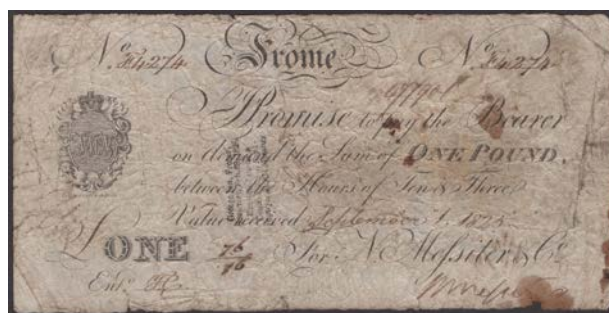 No. E4274 Frome No. E4274
I Promise to pay the Bearer
on demand the Sum of ONE POUND,
between the Hours of Ten & Three
Value received September 1. 1825
£ ONE For N. Messiter & Co.
Entd.